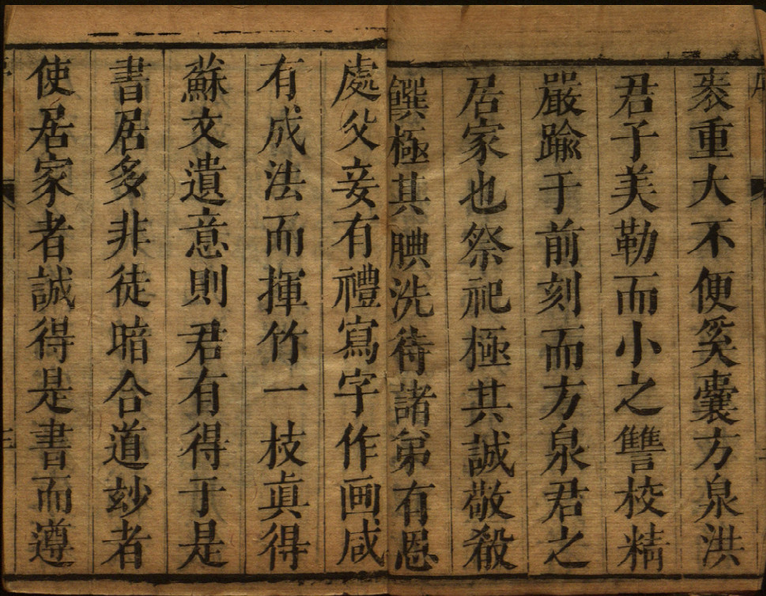 袠重大不便奚囊方泉洪
君子美勒而小之讐校精
嚴踰于前刻而方泉君之
居家也祭祀極其誠敬殽
饌極其腆洗待諸弟有恩
處父妾有禮寫字作画咸
有成法而揮竹一枝眞得
蘇文遺意則君有得于是
書居多非徒暗合道玅者
使居家者誠得是書而遵